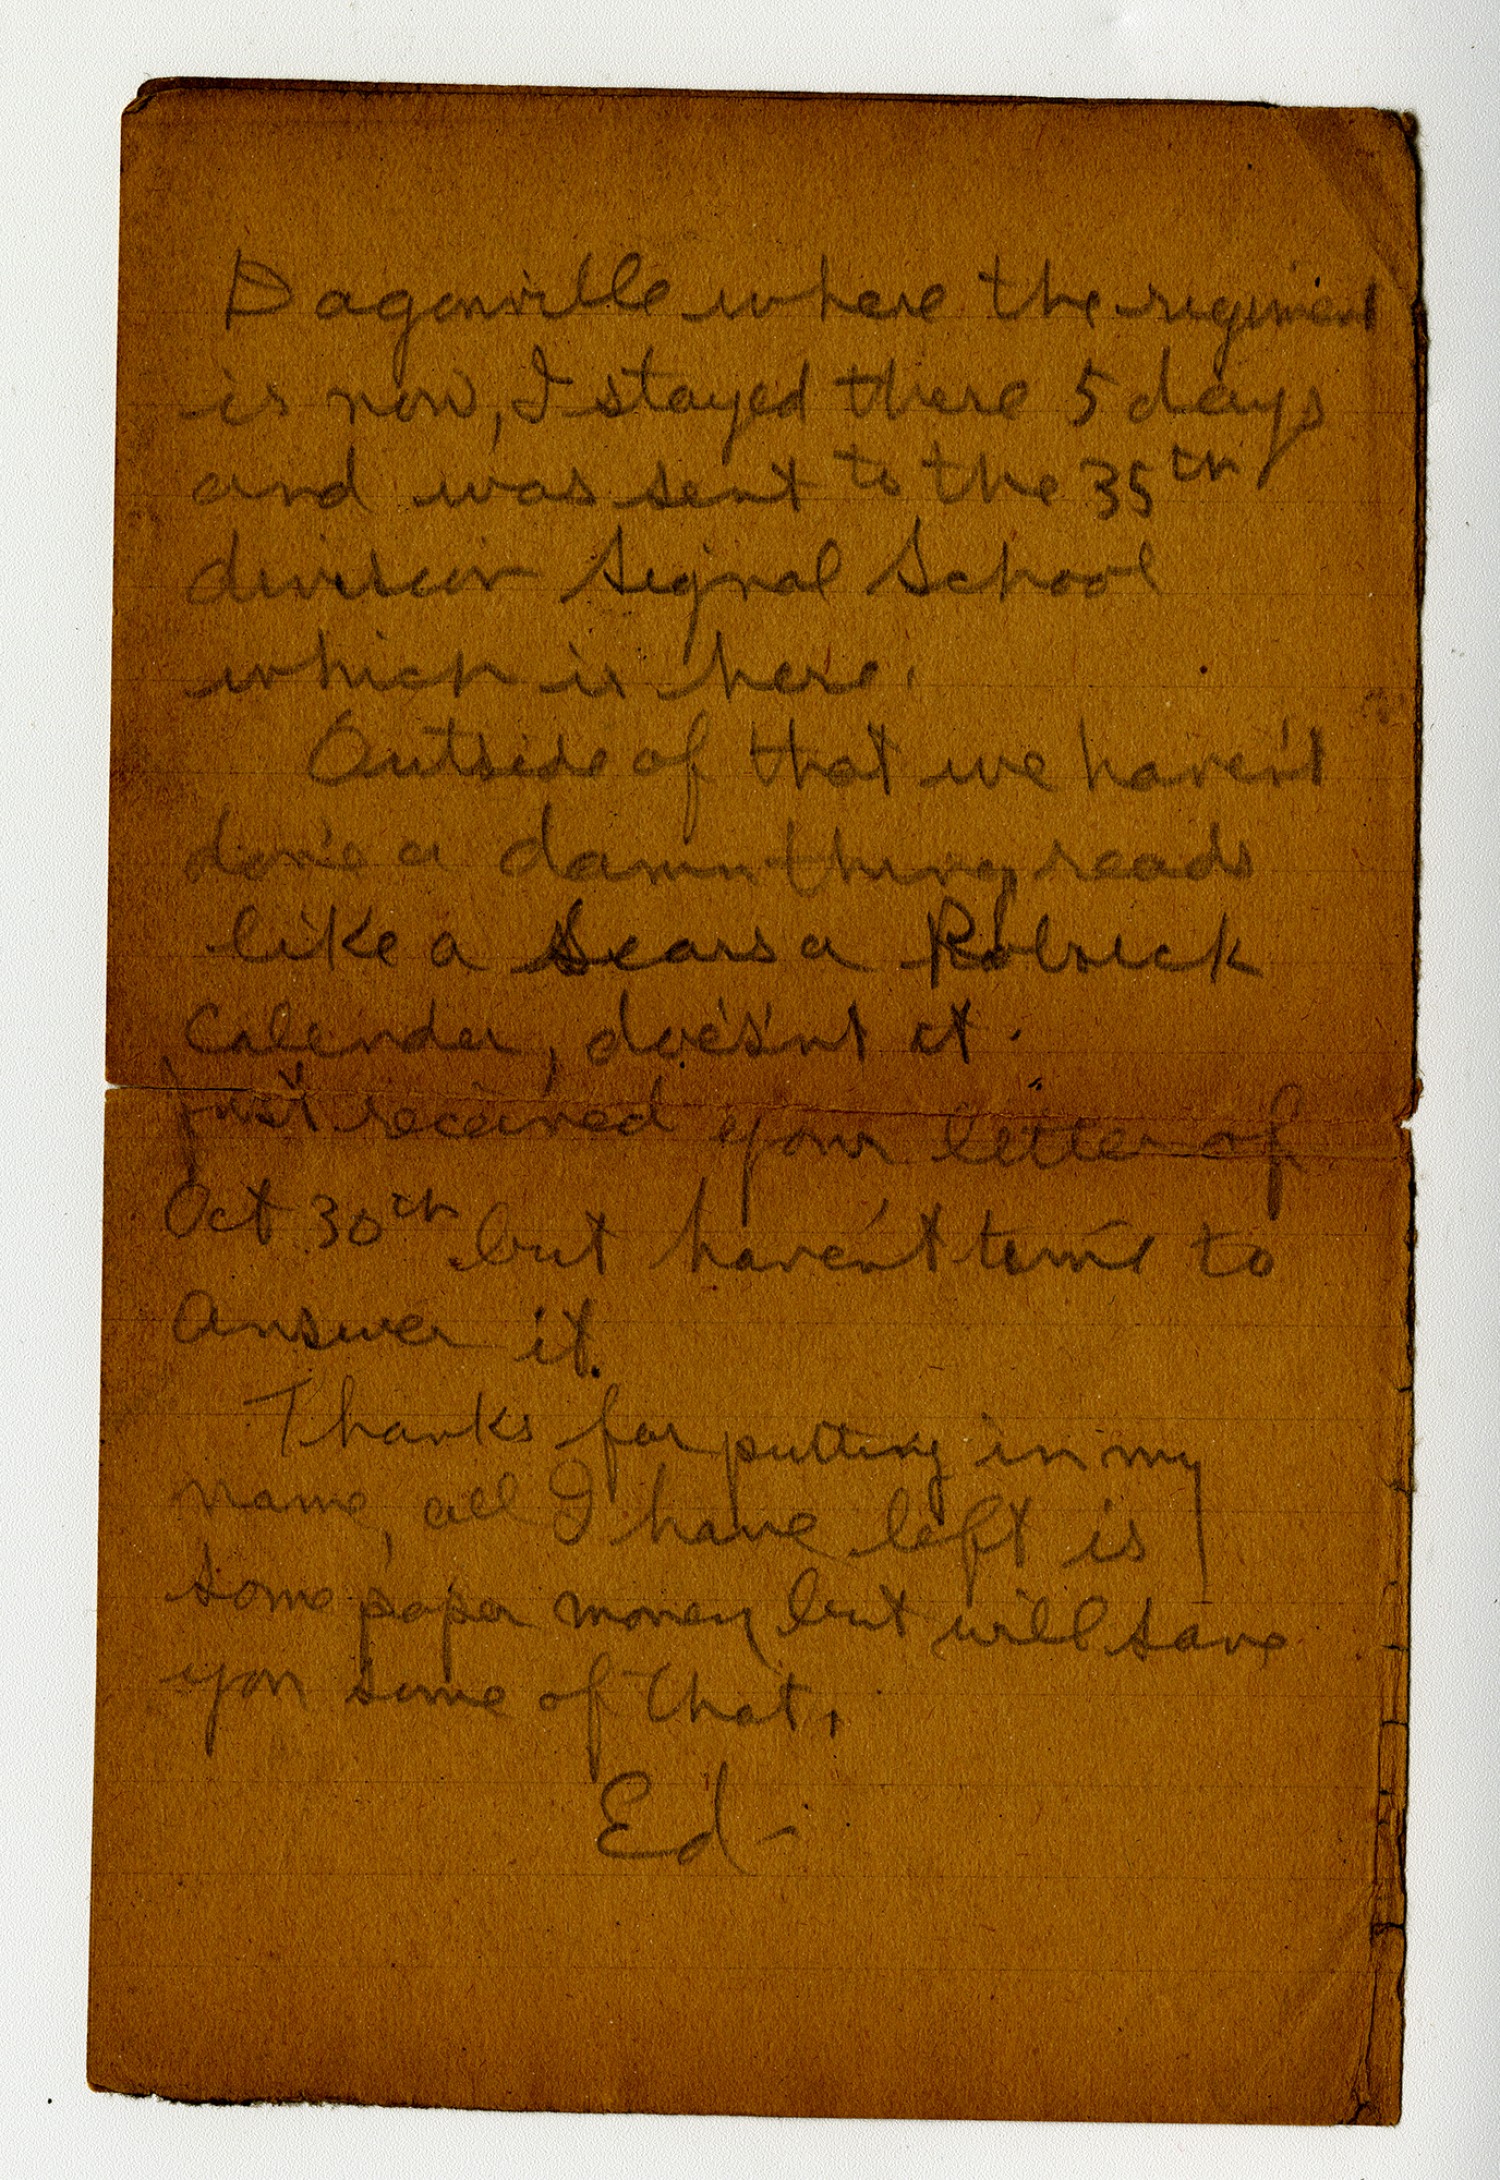 Dagonville where the regiment
is now, I stayed there 5 days
and was sent to the 35th
division Signal School
which is here.
Outside of that we haven't
done a damn thing reads
like a Sears a Robuck
Calender, does'nt it.
Just received your letter of
Oct 30th but haven't time to
answer it.
Thanks for putting in my
name, all I have left is
some paper money but will save
you some of that.
Ed-